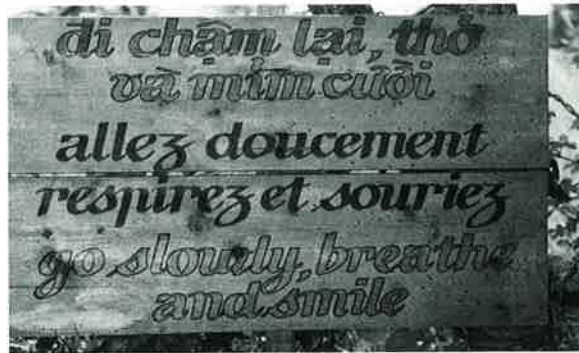 đi chậm lại, thở
và mỉm cười
allez doucement
respirez et souriez
go slowly, breathe
and smile